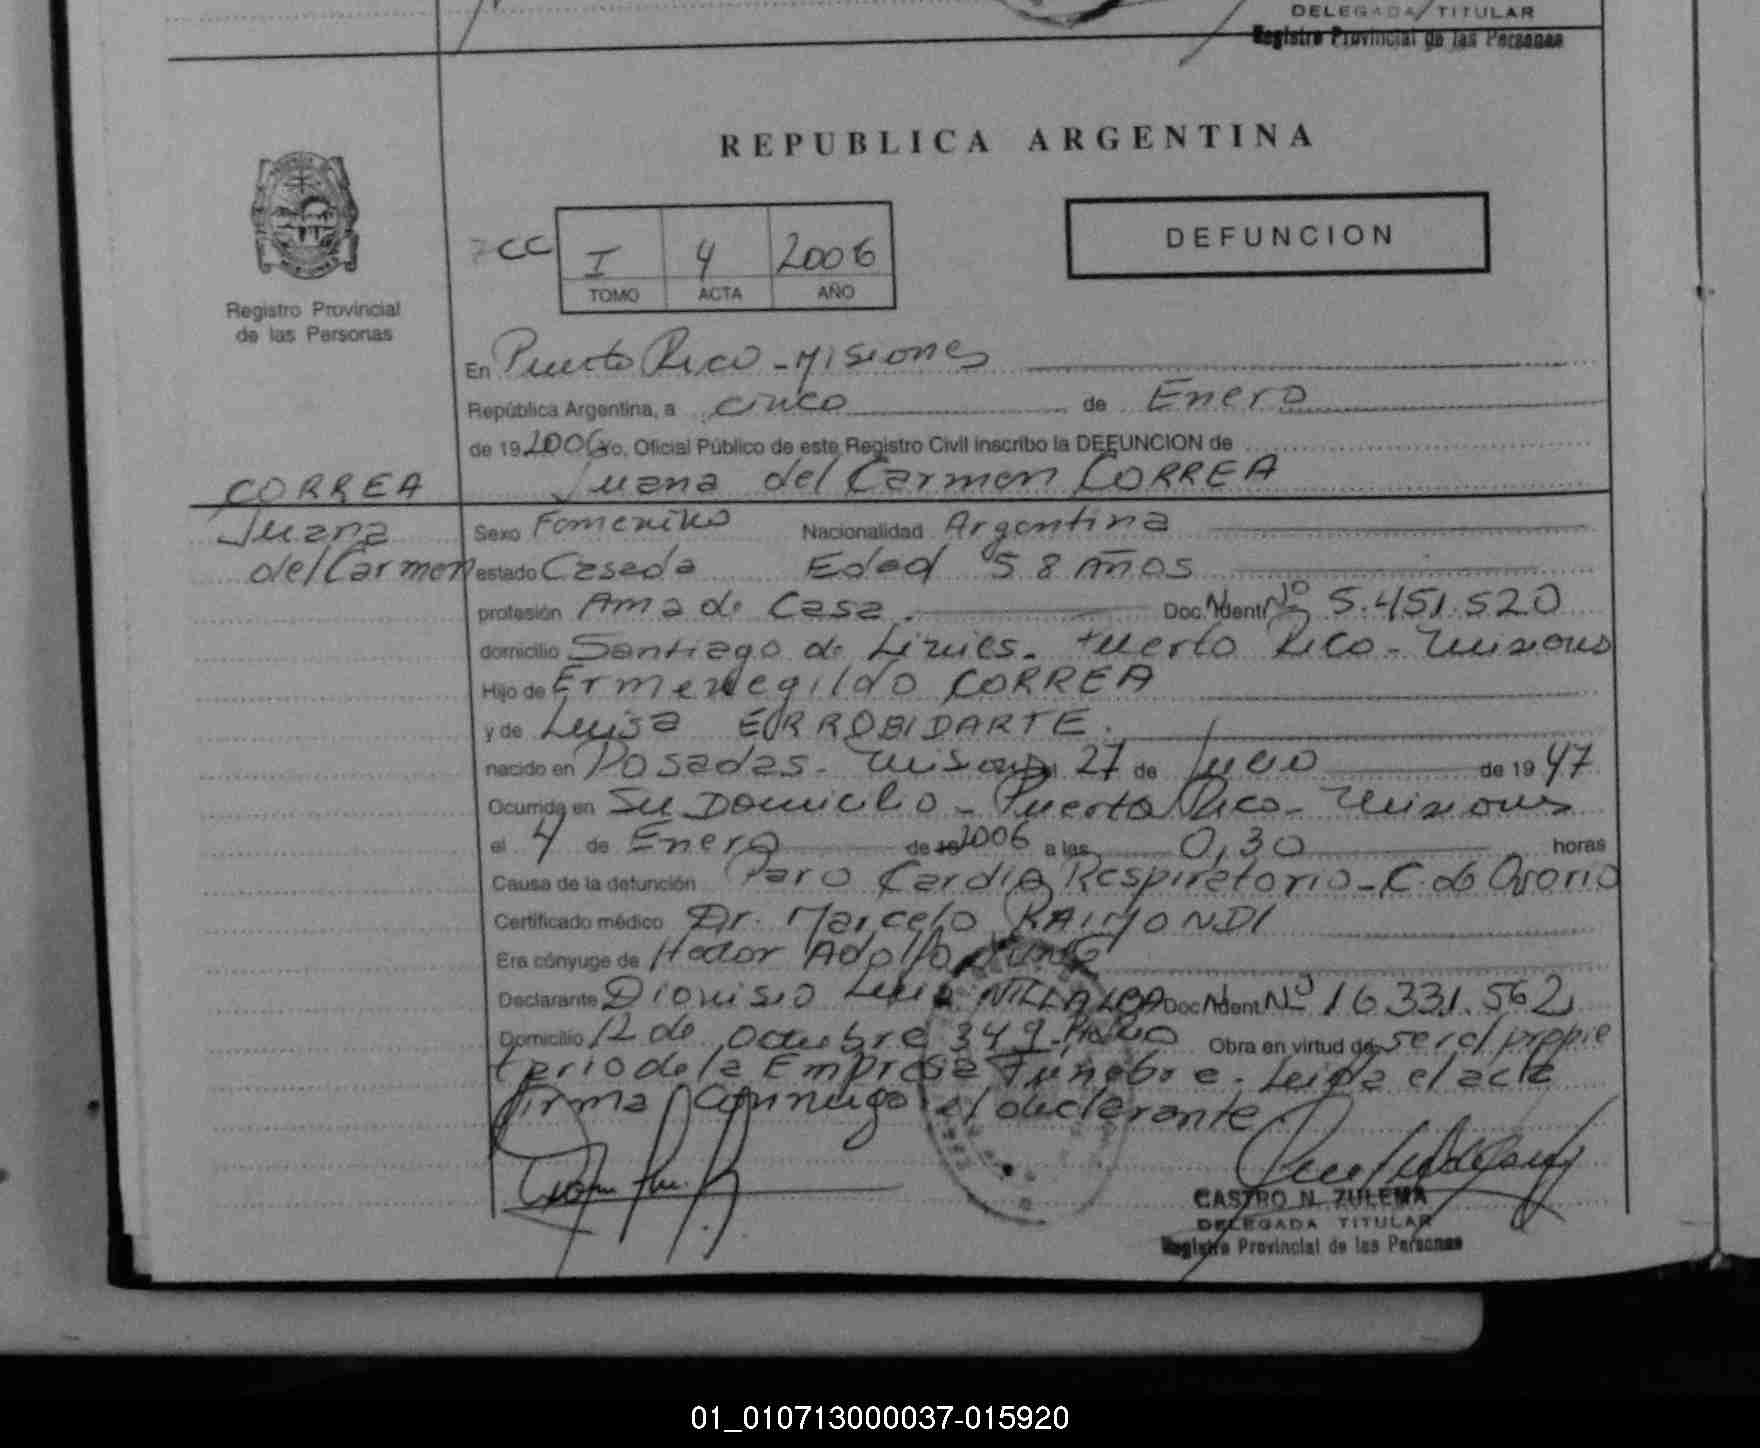 DELEGADA TITULAR
Registro Provincial de las Personas
REPUBLICA ARGENTINA
Registro Provincial
de las Personas
CC
I 4 2006
TOMO ACTA AÑO
DEFUNCION
En Puerto Rico - Misiones
República Argentina, a cinco de Enero
de 19 2006 Yo, Oficial Público de este Registro Civil inscribo la DEFUNCION de
CORREA Juana del Carmen CORREA
Juana Sexo Femenino Nacionalidad Argentina
del Carmen estado Casada Edad 58 años
profesión Ama de Casa. Doc. Ident. Nº 5.451.520
domicilio Santiago de Liniers - Puerto Rico - Misiones
Hijo de Ermenegildo CORREA
y de Luisa ERROBIDARTE.
nacido en Posadas - Misiones el 27 de de 19 47
Ocurrida en Su Domicilio - Puerto Rico - Misiones
el 4 de Enero de 19 2006 a las 0,30 horas
Causa de la defunción Paro Cardio Respiratorio - C. de Ovario
Certificado médico Dr. Marcelo RAIMONDI
Era cónyuge de Hector Adolfo
Declarante Dionisio Luis VILLALBA Doc. Ident. Nº 16.331.562
Domicilio 12 de Octubre 349 - Pto Rico Obra en virtud de ser el propie
tario de la Empresa Funebre. Leida el acta
firma conmigo el declarante.
CASTRO N. ZULEMA
DELEGADA TITULAR
Registro Provincial de las Personas
01_010713000037-015920